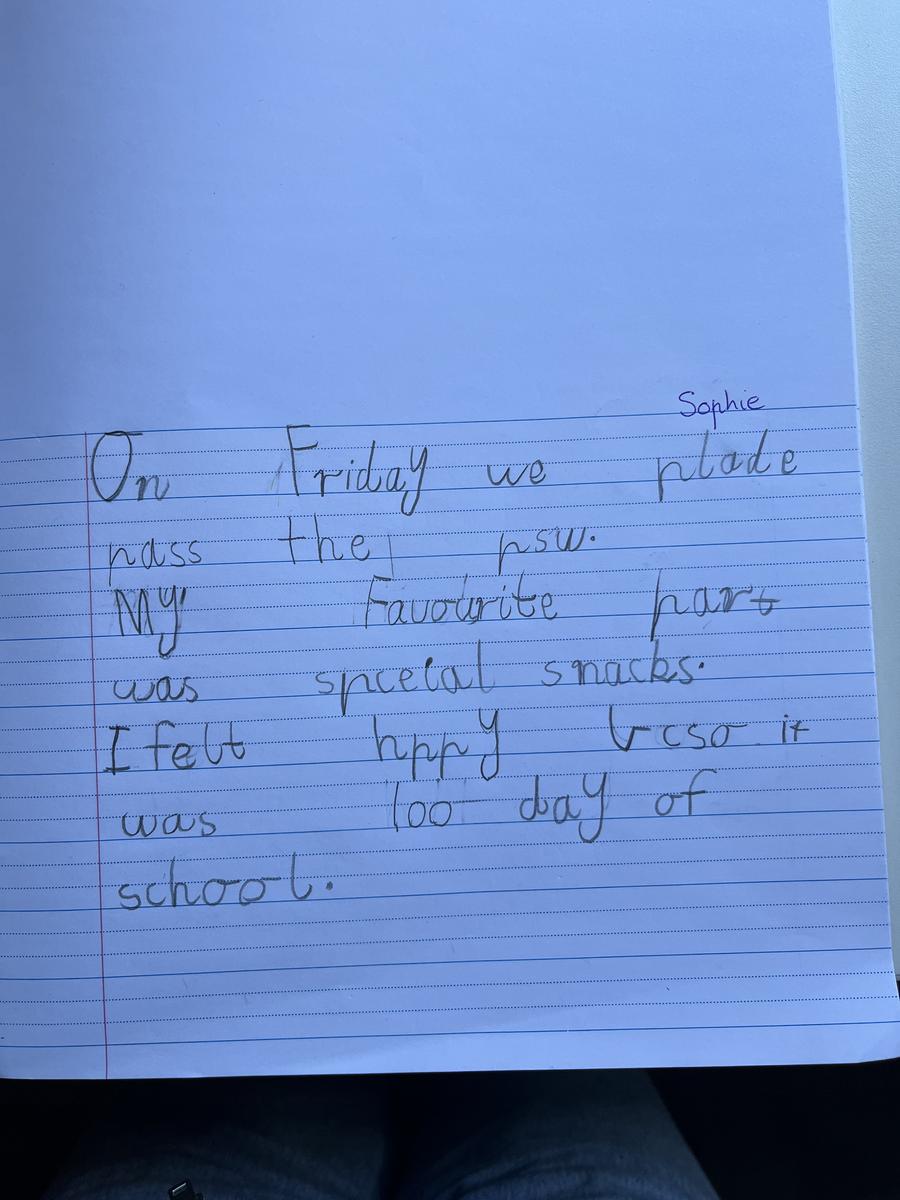 Sophie
On Friday we plade
pass the psw.
My Favourite part
was spceial snacks.
I felt hppy bcso it
was 100 day of
school.